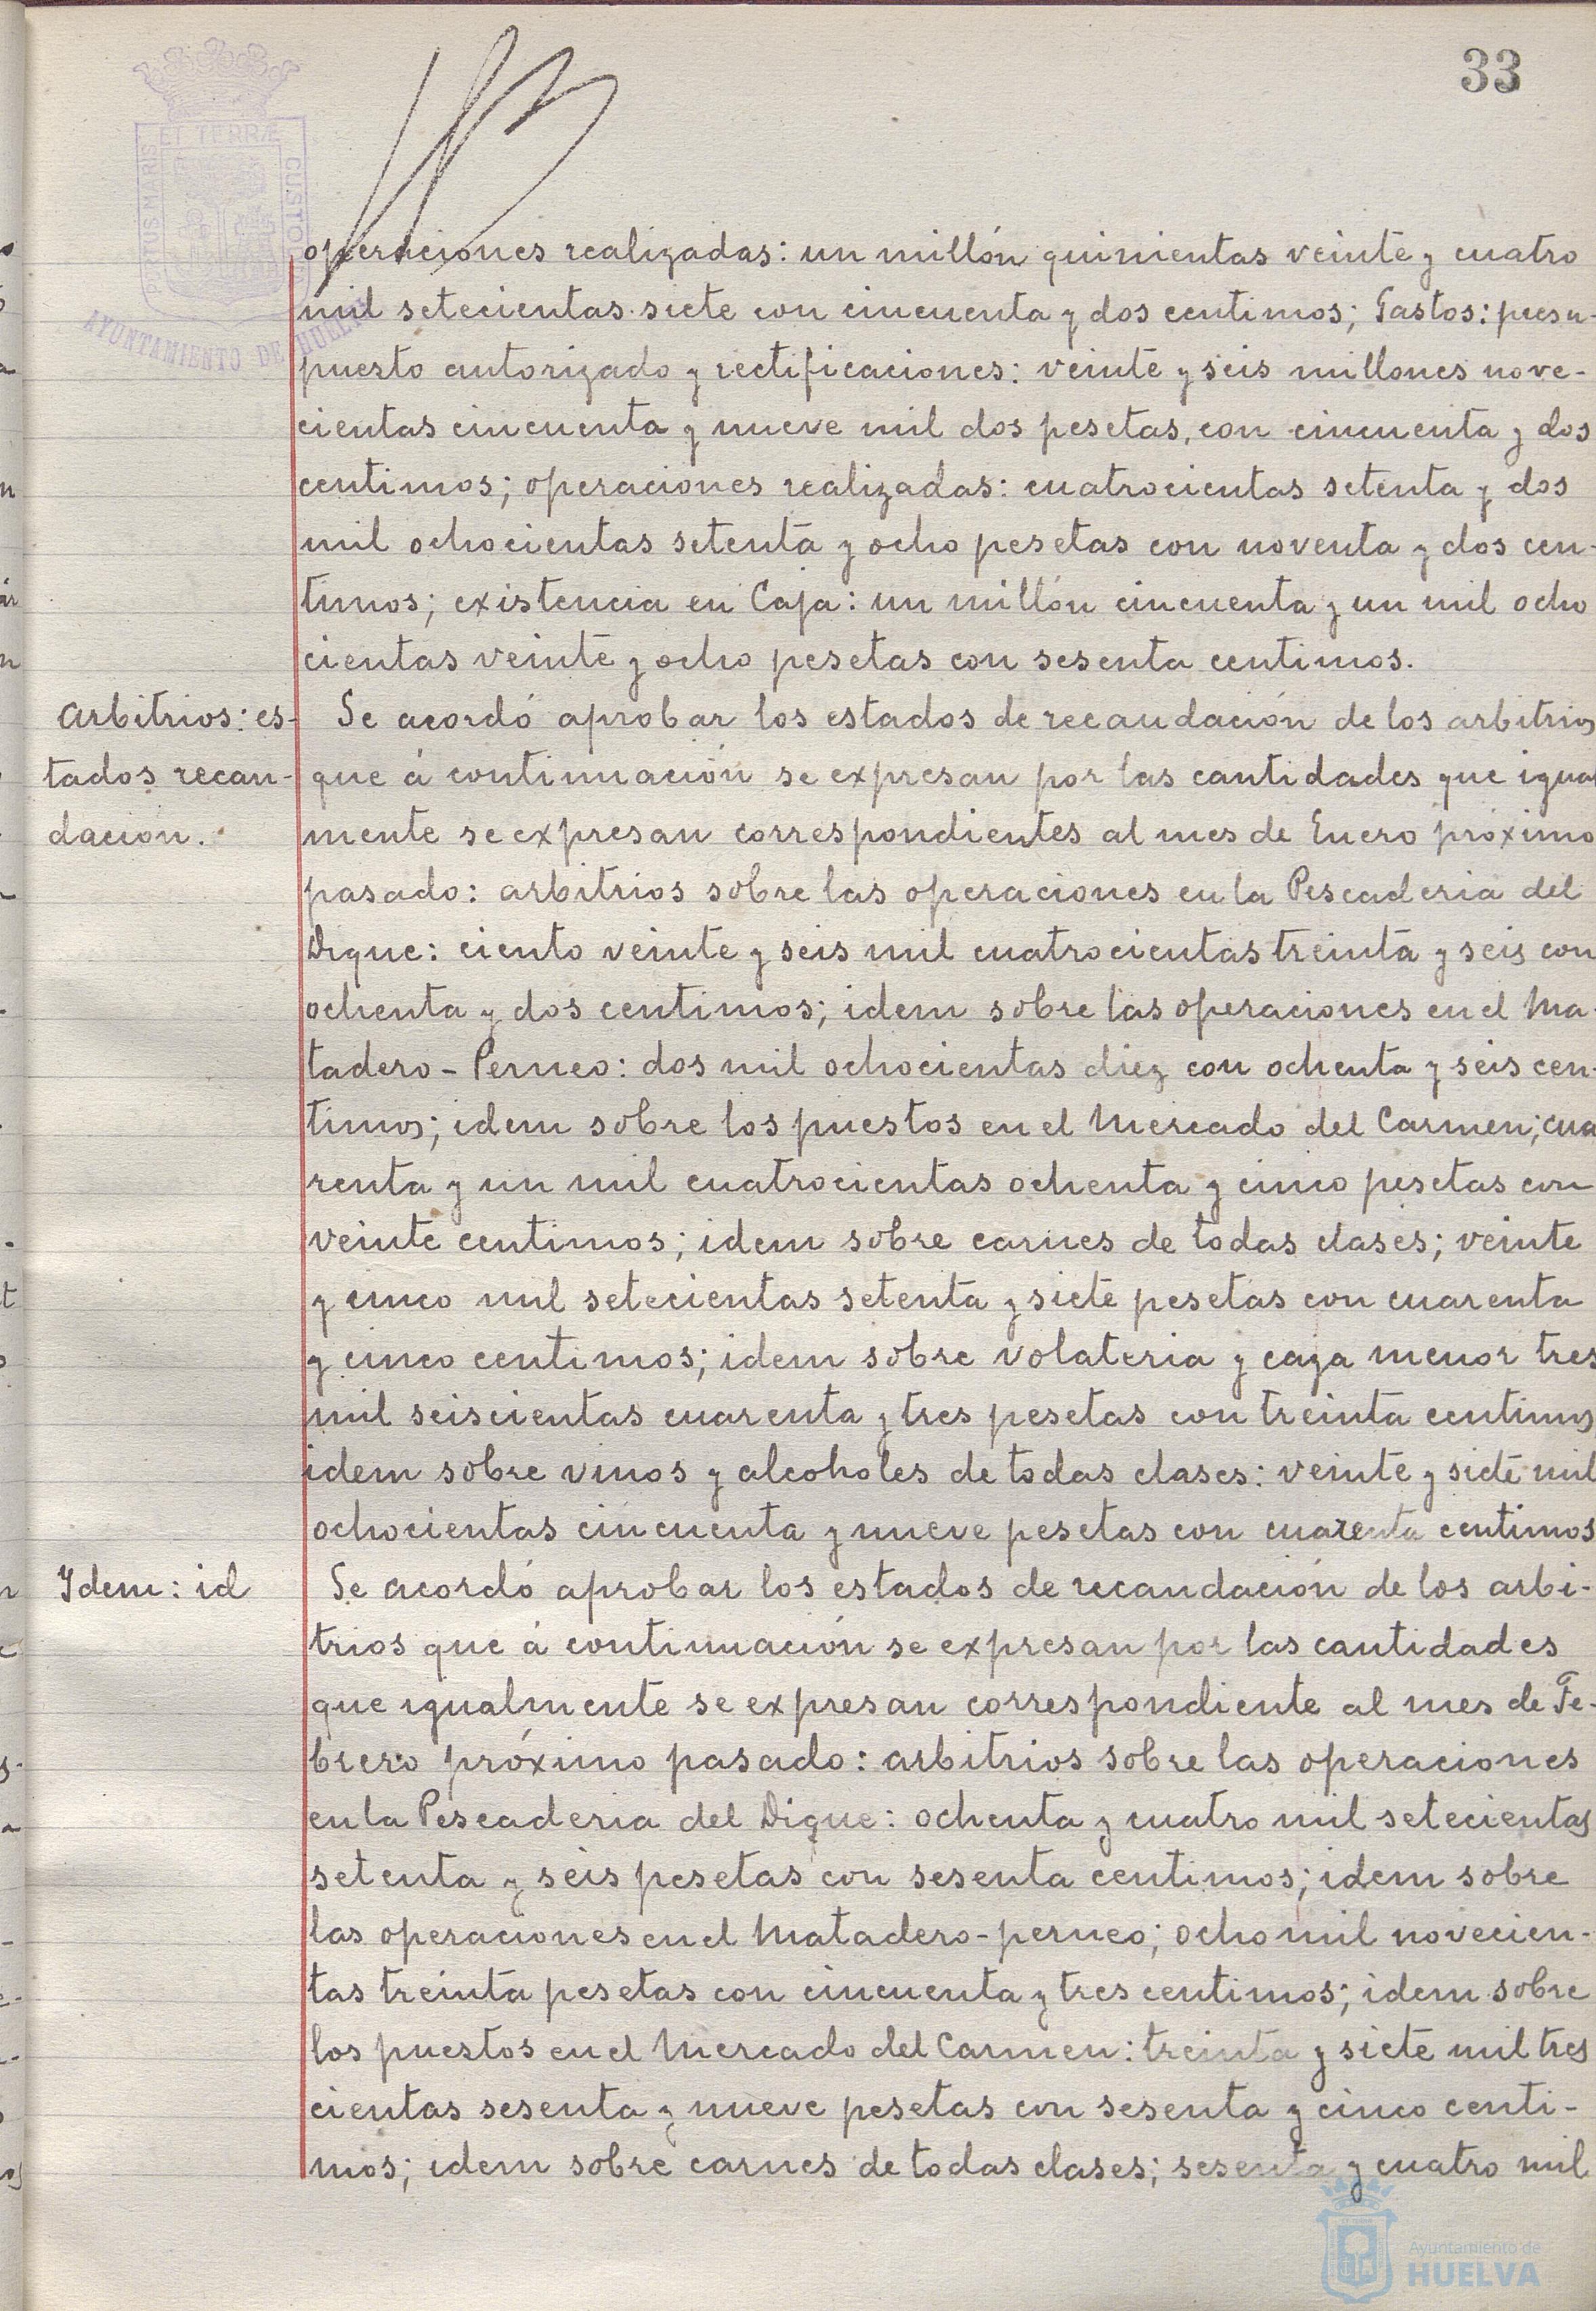 33
PORTUS MARIS ET TERRÆ CUSTODIA
AYUNTAMIENTO DE HUELVA
operaciones realizadas: un millón quinientas veinte y cuatro
mil setecientas siete con cincuenta y dos centimos; Gastos: presu-
puesto autorizado y rectificaciones: veinte y seis millones nove-
cientas cincuenta y nueve mil dos pesetas, con cincuenta y dos
centimos; operaciones realizadas: cuatrocientas setenta y dos
mil ochocientas setenta y ocho pesetas con noventa y dos cen-
timos; existencia en Caja: un millón cincuenta y un mil ocho
cientas veinte y ocho pesetas con sesenta centimos.
Arbitrios: es-
tados recau-
dacion.
Se acordó aprobar los estados de recaudación de los arbitrios
que á continuación se expresan por las cantidades que igual
mente se expresan correspondientes al mes de Enero próximo
pasado: arbitrios sobre las operaciones en la Pescaderia del
Dique: ciento veinte y seis mil cuatrocientas treinta y seis con
ochenta y dos centimos; idem sobre las operaciones en el Ma-
tadero-Perneo: dos mil ochocientas diez con ochenta y seis cen-
timos; idem sobre los puestos en el Mercado del Carmen; cua
renta y un mil cuatrocientas ochenta y cinco pesetas con
veinte centimos; idem sobre carnes de todas clases; veinte
y cinco mil setecientas setenta y siete pesetas con cuarenta
y cinco centimos; idem sobre volateria y caza menor tres
mil seiscientas cuarenta y tres pesetas con treinta centimos
idem sobre vinos y alcoholes de todas clases: veinte y siete mil
ochocientas cincuenta y nueve pesetas con cuarenta centimos
Idem: id
Se acordó aprobar los estados de recaudación de los arbi-
trios que á continuación se expresan por las cantidades
que igualmente se expresan correspondiente al mes de Fe-
brero próximo pasado: arbitrios sobre las operaciones
en la Pescaderia del Dique: ochenta y cuatro mil setecientas
setenta y seis pesetas con sesenta centimos; idem sobre
las operaciones en el Matadero-perneo; ocho mil novecien-
tas treinta pesetas con cincuenta y tres centimos; idem sobre
los puestos en el Mercado del Carmen: treinta y siete mil tres
cientas sesenta y nueve pesetas con sesenta y cinco centi-
mos; idem sobre carnes de todas clases; sesenta y cuatro mil
Ayuntamiento de
HUELVA